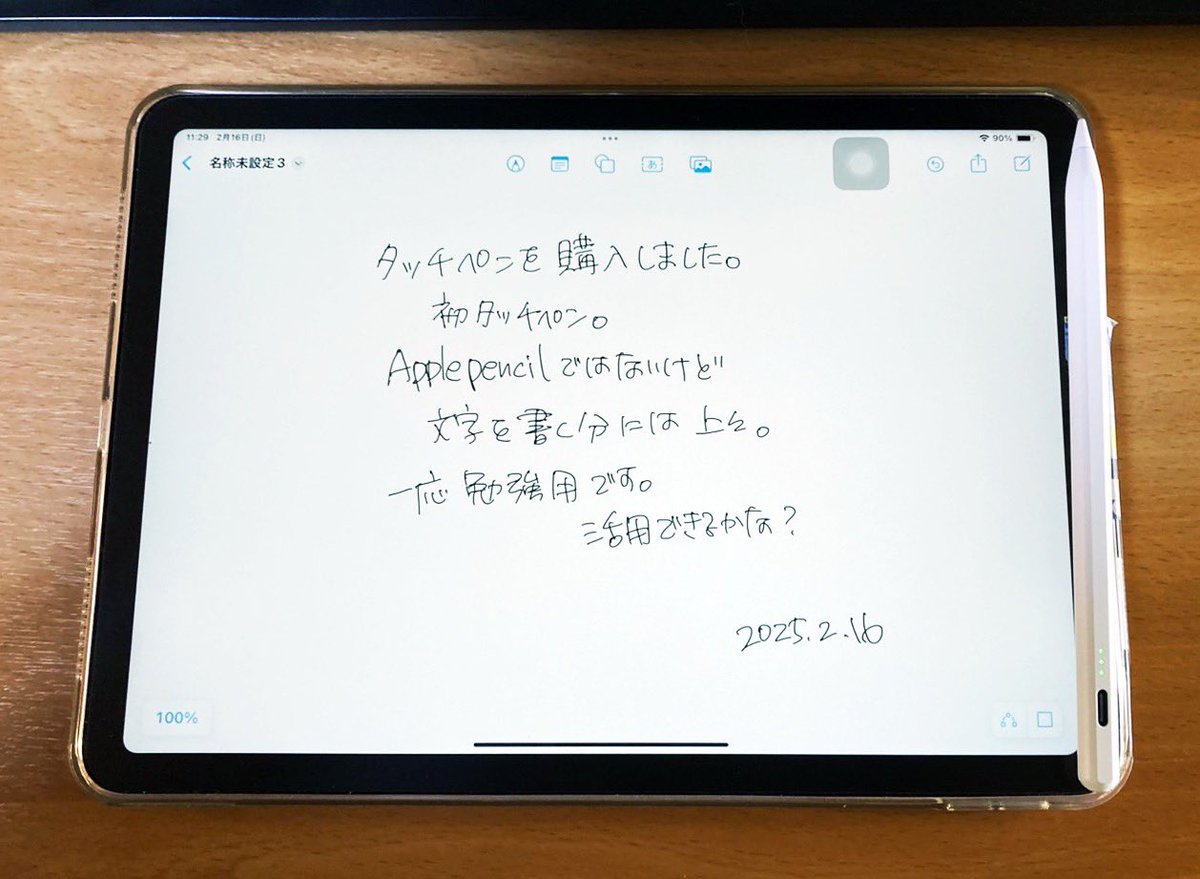 11:29 2月16日(日)
90%
名称未設定 3
あ
タッチペンを購入しました。
初タッチペン。
Applepencilではないけど
文字を書く分には上々。
一応勉強用です。
活用できるかな?
2025.2.16
100%